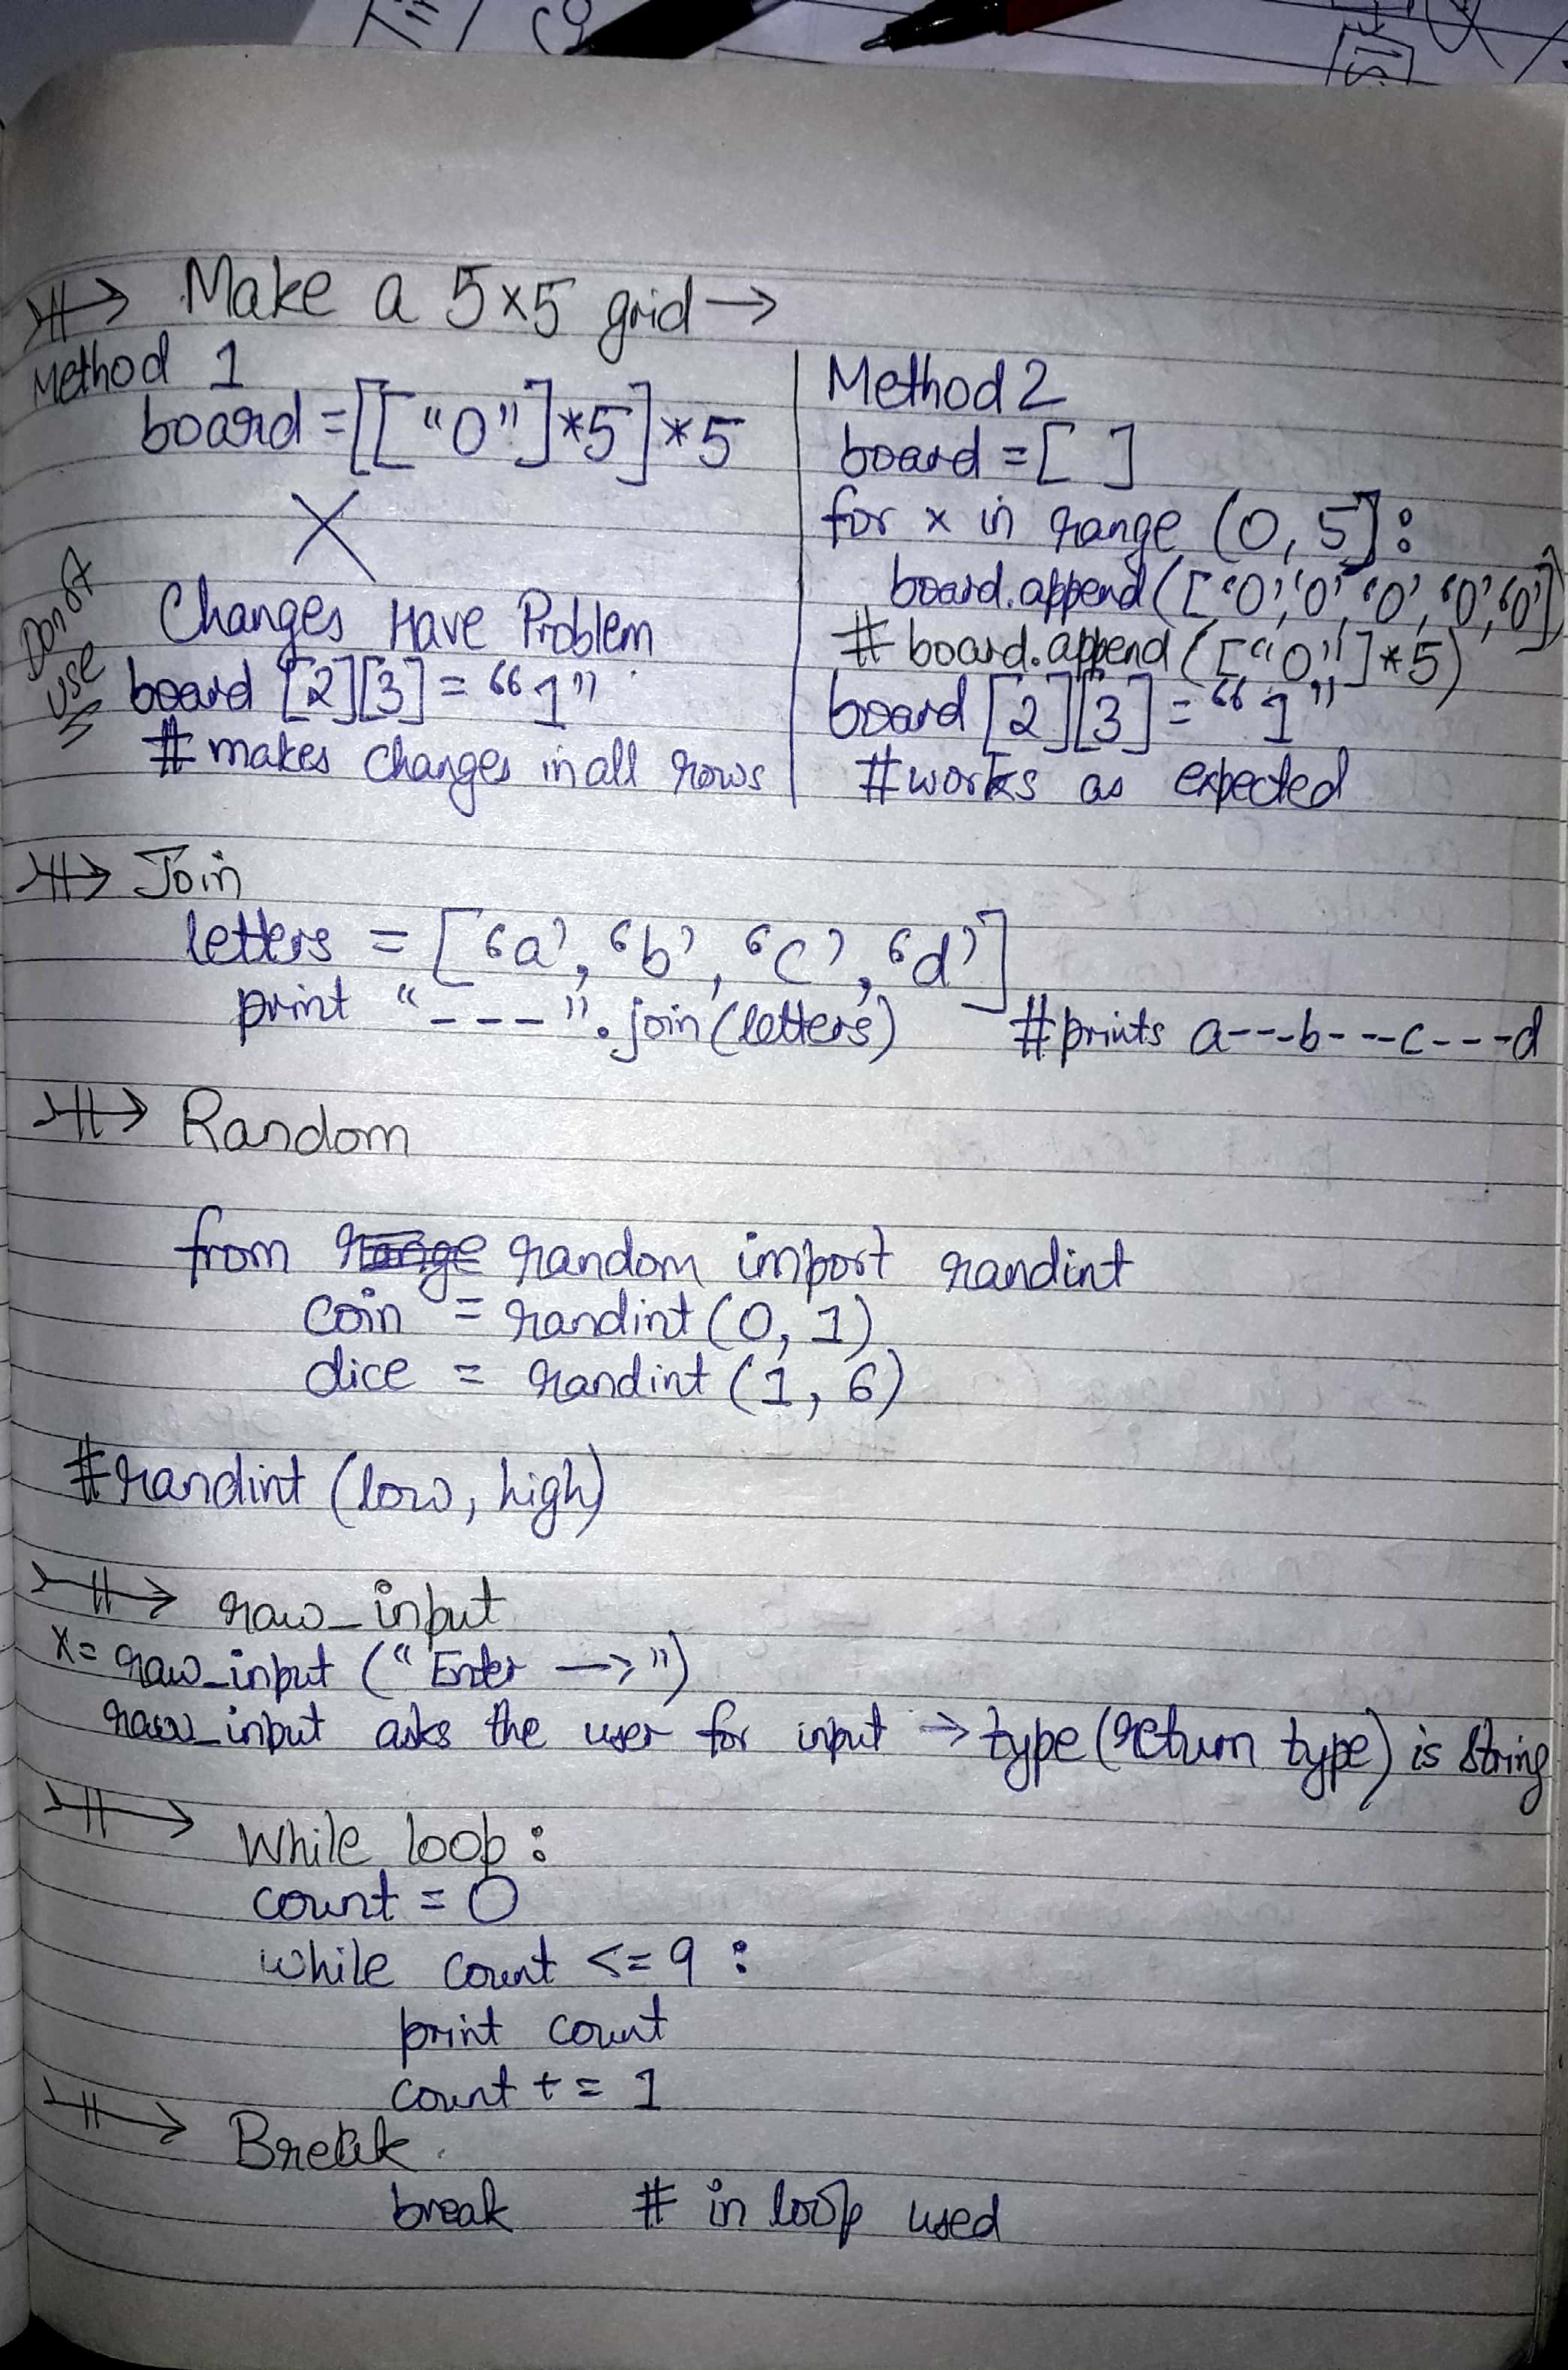 Make a 5x5 grid →
Method 1
board = [["0"]*5]*5
X
Don't use
Changes Have Problem
board [2][3] = "1"
# makes changes in all rows
Method 2
board = [ ]
for x in range (0, 5]:
board.append(['0','0','0','0','0'])
# board.append(["0"]*5)
board [2][3] = "1"
# works as expected
Join
letters = ['a', 'b', 'c', 'd']
print "---".join(letters) # prints a---b---c---d
Random
from range random import randint
coin = randint(0, 1)
dice = randint(1, 6)
# randint (low, high)
raw_input
x = raw_input ("Enter —>")
raw_input asks the user for input → type (return type) is string
While loop:
count = 0
while count <= 9 :
print count
count += 1
Break
break # in loop used